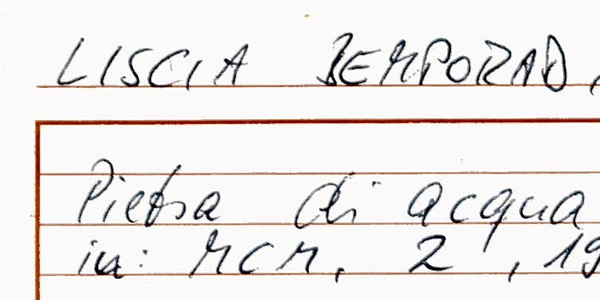 LISCIA BEMPORAD,
Pietra di acqua
in: MCM, 2, 19